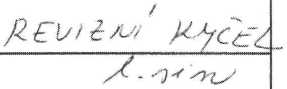 REVIZNÍ KYČEL
l. sin